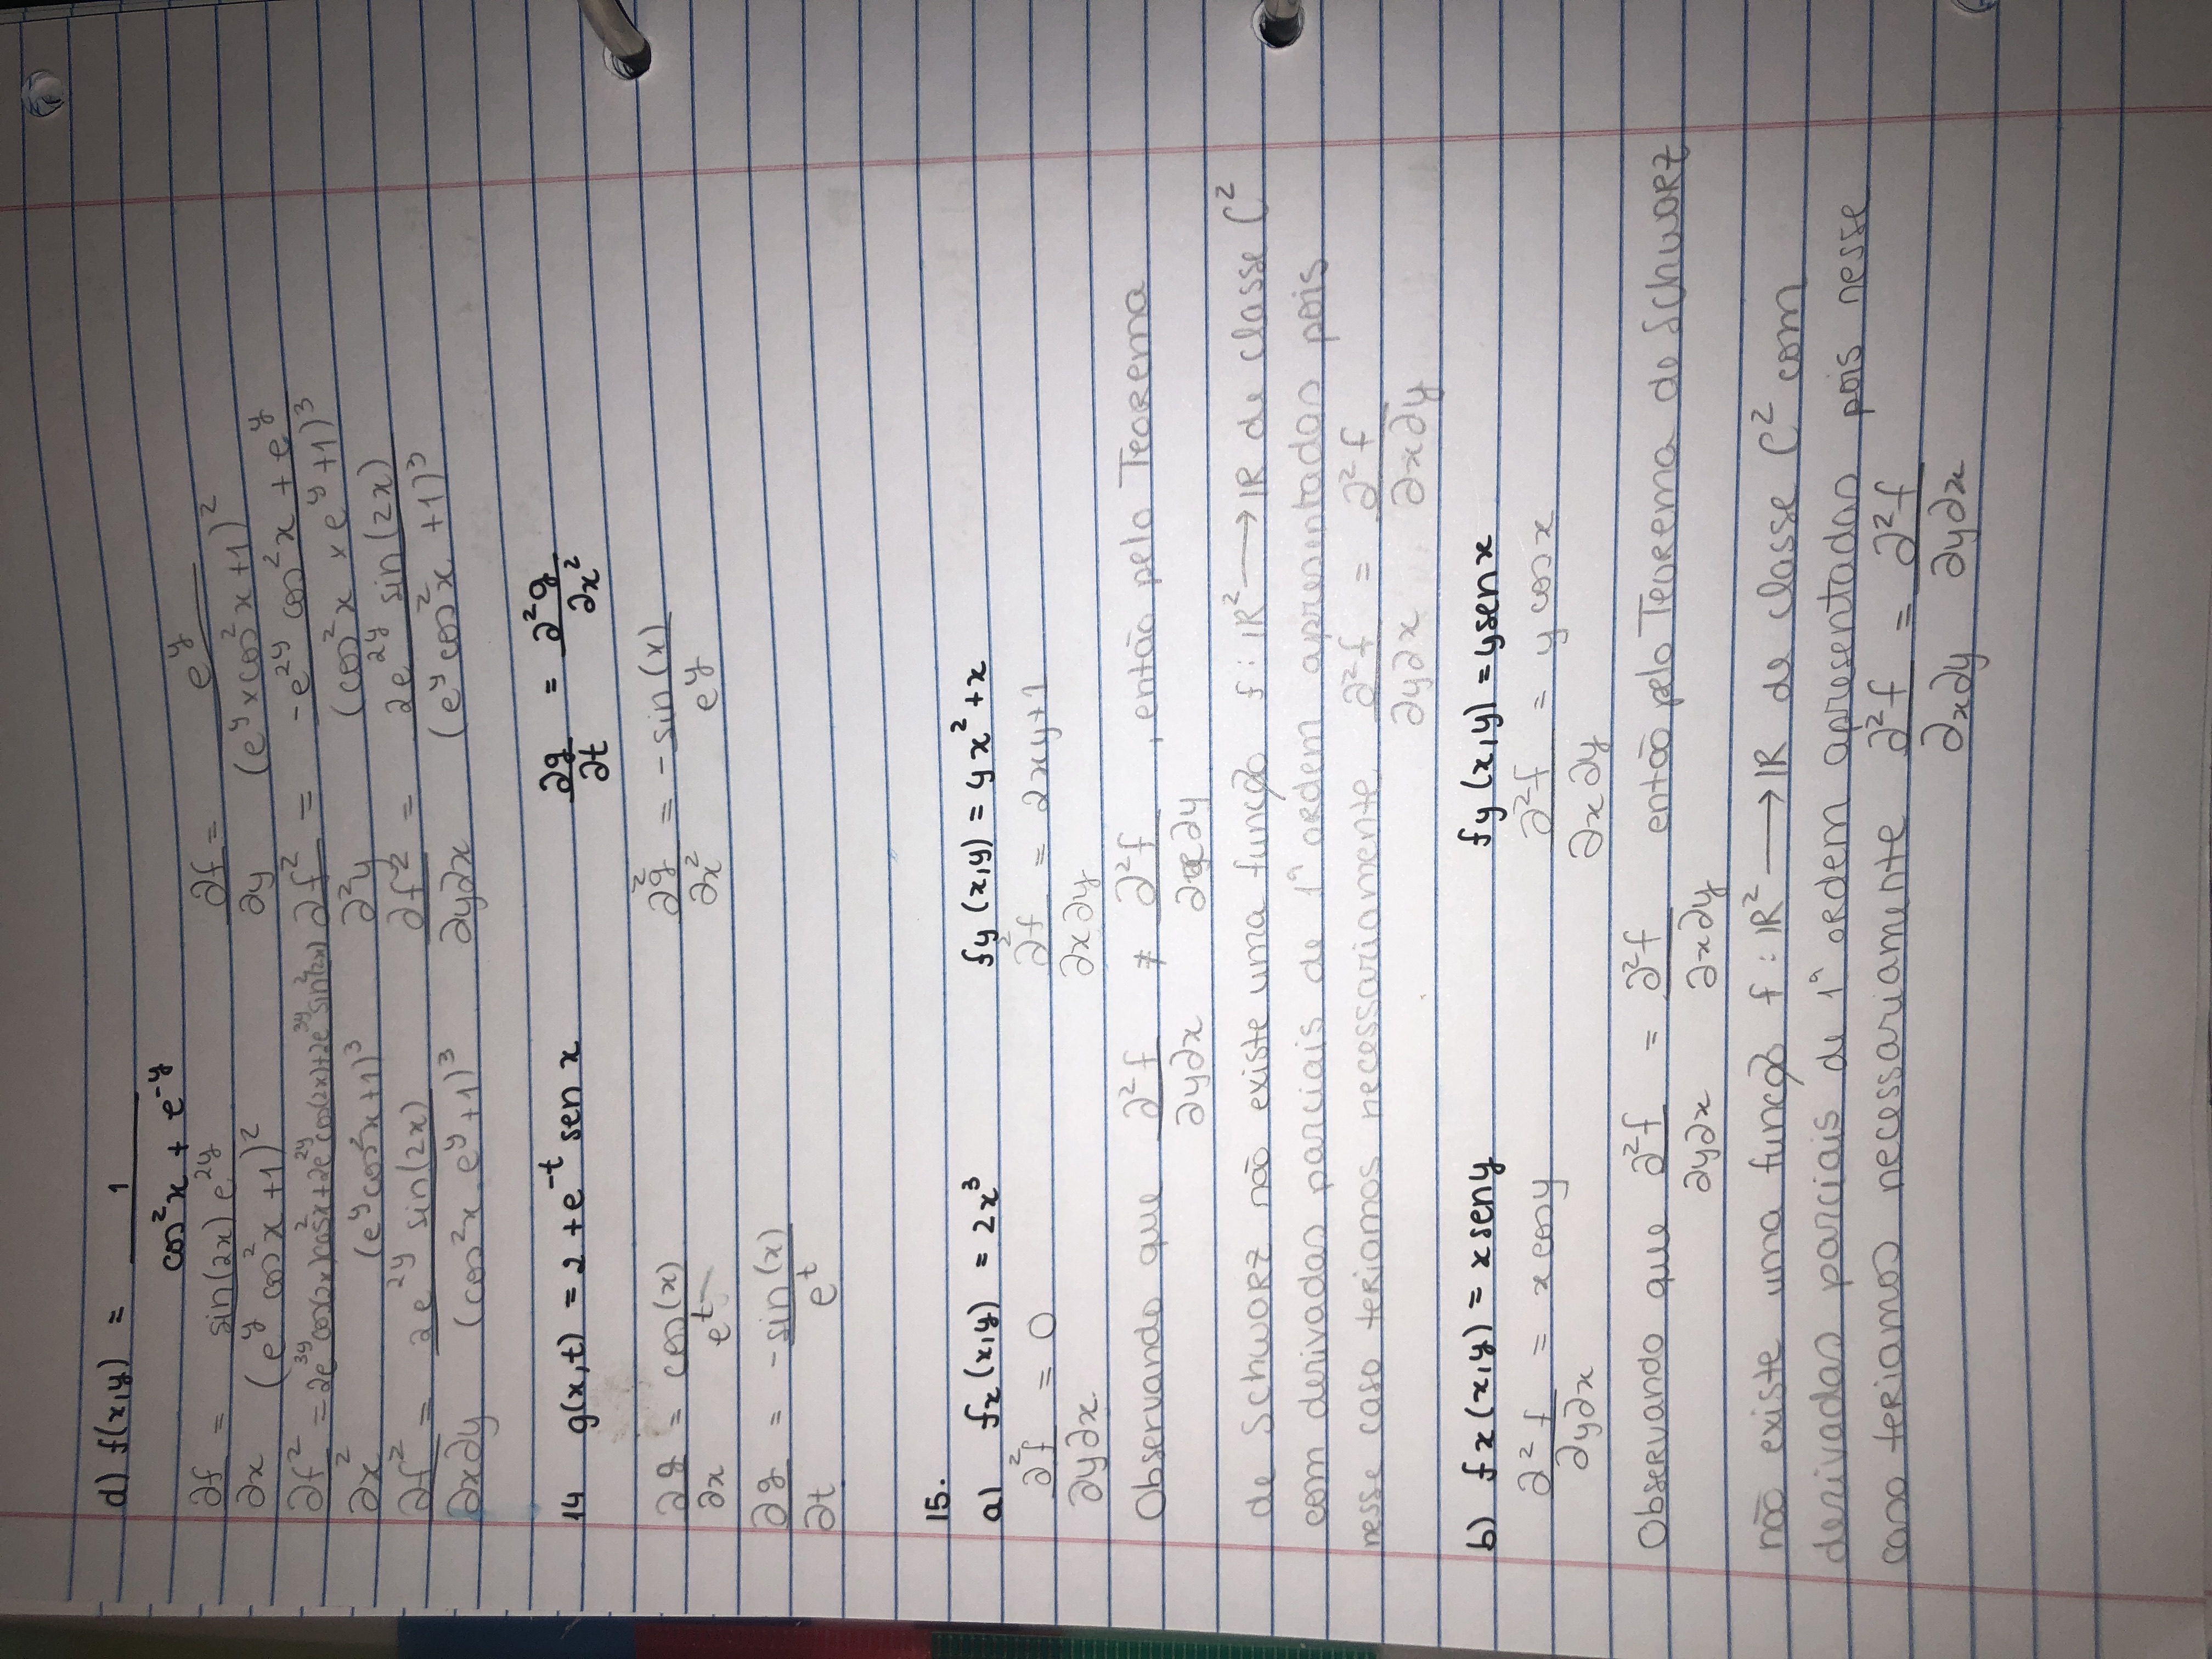 d) f(x,y) = 1 / (cos²x + e^-y)
∂f/∂x = sin(2x) e^2y / (e^y cos²x + 1)²    ∂f/∂y = e^y / (e^y × cos²x + 1)²
∂f²/∂x² = 2e^3y cos(2x) cos²x + 2e^2y cos(2x) + 2e^3y sin²(2x) / (e^y cos²x + 1)³    ∂f²/∂²y = -e^2y cos²x + e^y / (cos²x × e^y + 1)³
∂f²/∂x∂y = 2e^2y sin(2x) / (cos²x . e^y + 1)³    ∂f²/∂y∂x = 2e^2y sin(2x) / (e^y cos²x + 1)³
14 g(x,t) = 2 + e^-t sen x    ∂g/∂t = ∂²g/∂x²
∂g/∂x = cos(x)/e^t    ∂²g/∂x² = -sin(x)/e^y
∂g/∂t = -sin(x)/e^t
15.
a) fx(x,y) = 2x³    fy(x,y) = yx² + x
∂²f/∂y∂x = 0    ∂²f/∂x∂y = 2xy+1
Observando que ∂²f/∂y∂x ≠ ∂²f/∂x∂y , então pelo Teorema
de Schwarz não existe uma função f : IR² ⟶ IR de classe C²
com derivadas parciais de 1ª ordem apresentadas pois
nesse caso teriamos necessariamente ∂²f/∂y∂x = ∂²f/∂x∂y
b) fx(x,y) = x seny    fy(x,y) = ysenx
∂²f/∂y∂x = x cosy    ∂²f/∂x∂y = y cosx
Observando que ∂²f/∂y∂x = ∂²f/∂x∂y então pelo Teorema de Schwarz
não existe uma função f : IR² ⟶ IR de classe C² com
derivadas parciais de 1ª ordem apresentadas pois nesse
caso teriamos necessariamente ∂²f/∂x∂y = ∂²f/∂y∂x